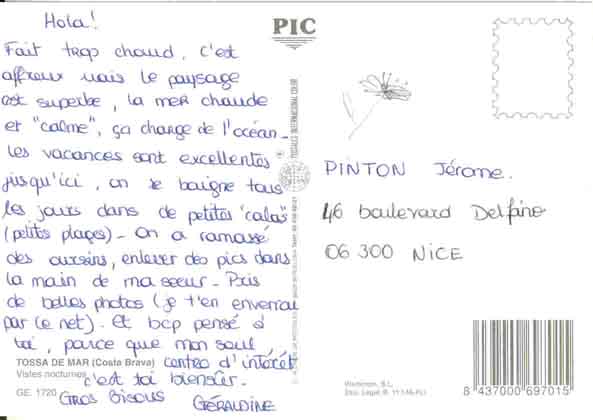 Hola!
Fait trop chaud, c'est
affreux mais le paysage
est superbe, la mer chaude
et "calme", ça change de l'océan.
Les vacances sont excellentes
jusqu'ici, on se baigne tous
les jours dans de petites "calas"
(petites plages). On a ramassé
des oursins, enlever des pics dans
la main de ma soeur. Pris
de belles photos (je t'en enverrai
par le net). Et bcp pensé à
toi, parce que mon seul
centre d'intérêt
c'est toi biensûr.
Gros Bisous GÉRALDINE
TOSSA DE MAR (Costa Brava)
Vistes nocturnes
GE. 1720
PIC
PINTON Jérome.
46 boulevard Delfino
06 300 NICE
8 437000 697015